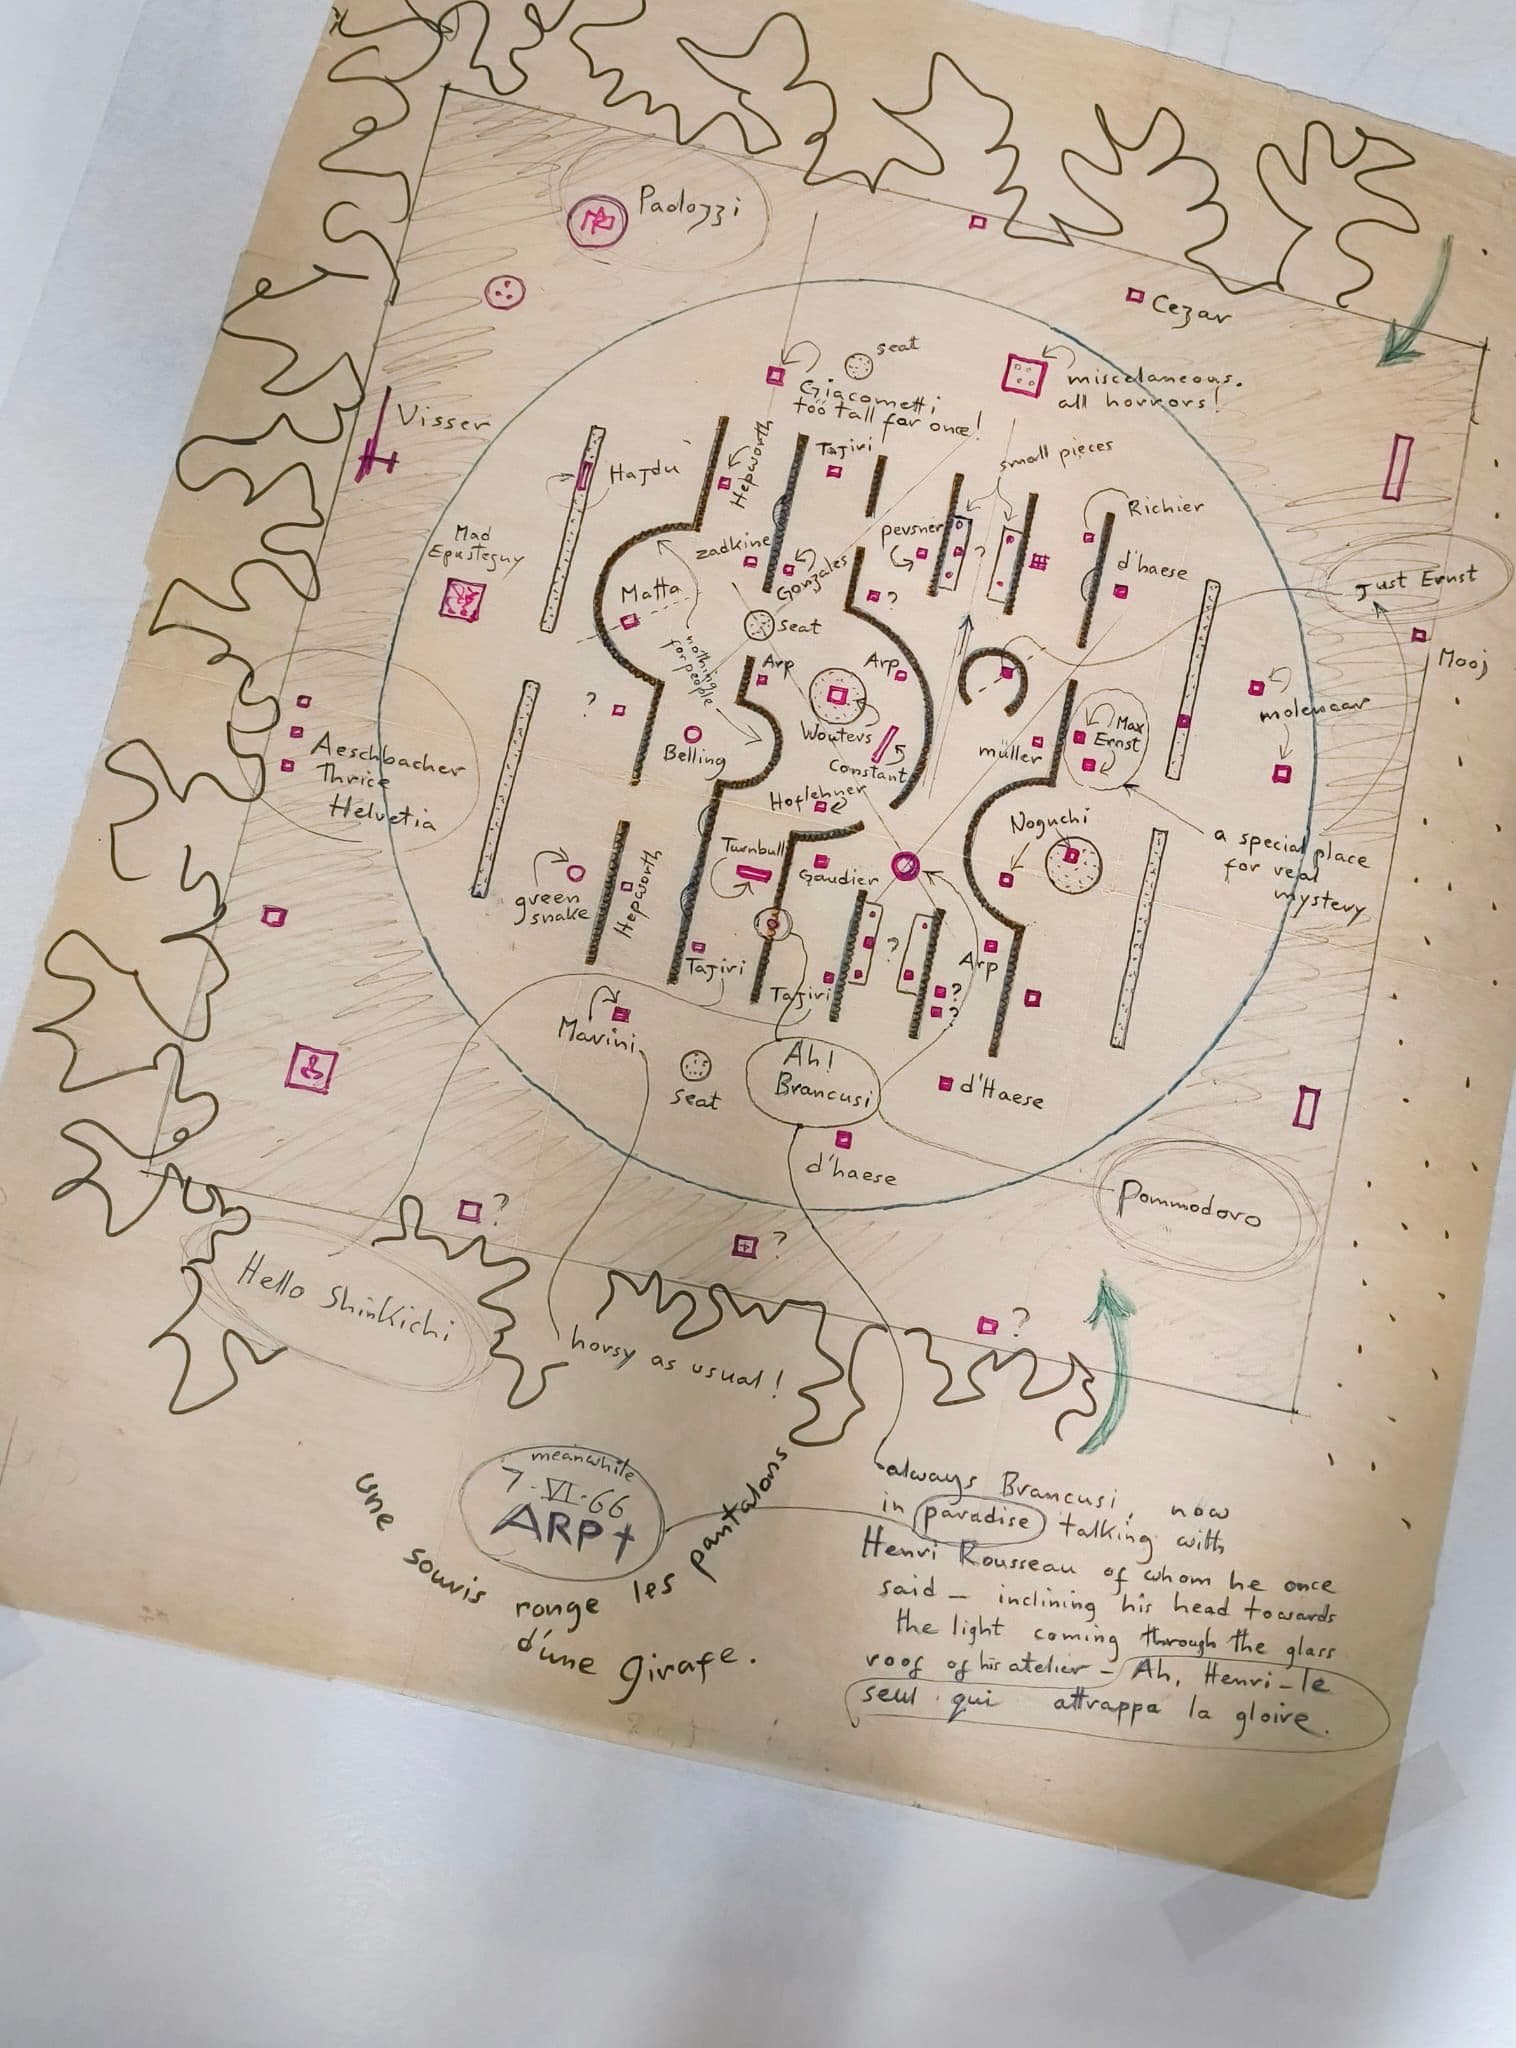 Paolozzi
Cezar
seat
Giacometti
too tall for once!
miscelaneous.
all horrors!
Visser
Hajdu
Hepworth
Tajiri
small pieces
Richier
Mad
Epusteguy
zadkine
Gonzales
pevsner
?
d'haese
Just Ernst
Matta
seat
?
nothing
for people
Arp
Arp
Mooj
molenaar
?
Belling
Wouters
Constant
müller
Max
Ernst
Aeschbacher
Thrice
Helvetia
Hoflehner
Noguchi
a special place
for real
mystery
Turnbull
Gaudier
green
snake
Hepworth
Tajiri
Tajiri
?
Arp
?
?
Marini
seat
Ah!
Brancusi
d'Haese
d'haese
Pommodoro
?
?
?
Hello Shinkichi
horsy as usual!
meanwhile
7·VI·66
ARP†
une souris range les pantalons
d'une girafe.
always Brancusi, now
in paradise talking with
Henri Rousseau of whom he once
said – inclining his head towards
the light coming through the glass
roof of his atelier – Ah, Henri – le
seul qui attrappa la gloire.